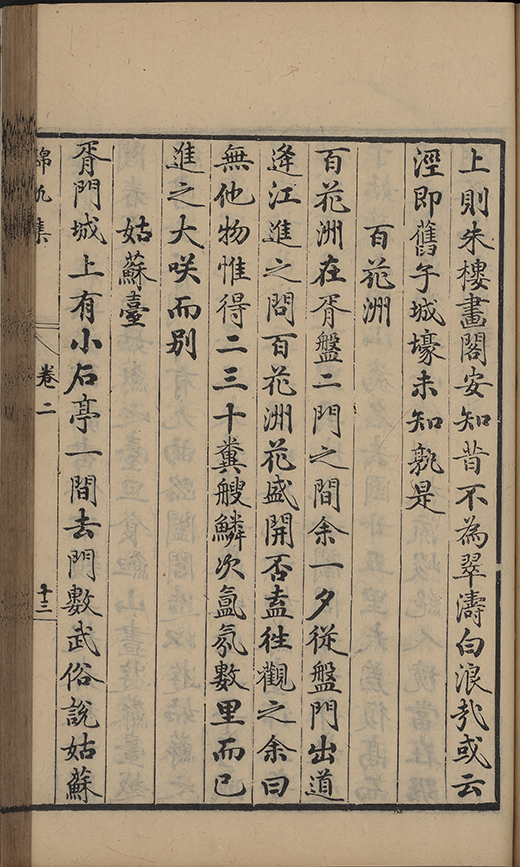 上則朱樓畫閣安知昔不為翠濤白浪㢤或云
涇即舊子城壕未知孰是
百花洲
百花洲在胥盤二門之間余一夕從盤門出道
逄江進之問百花洲花盛開否盍徃觀之余曰
無他物惟得二三十糞艘鱗次氤氛數里而已
進之大咲而别
姑蘇臺
胥門城上有小石亭一間去門數武俗說姑蘇
錦帆集
卷二
十三